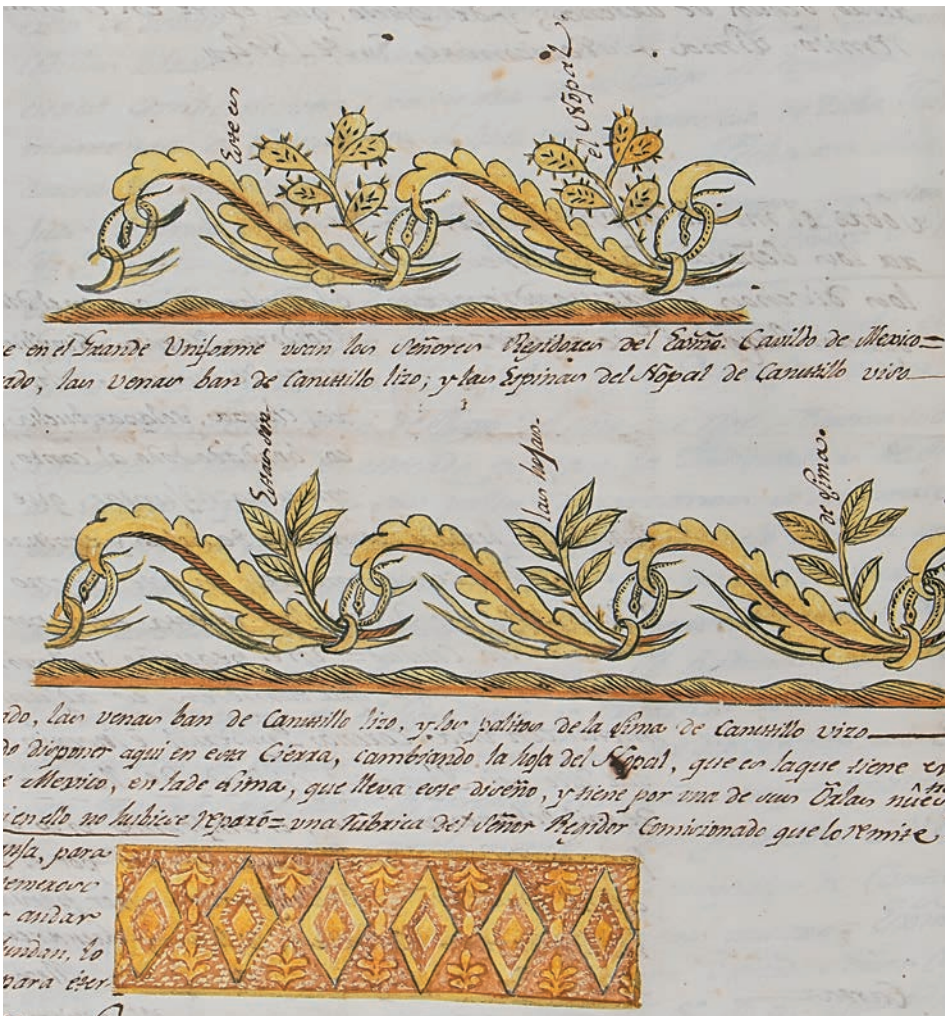 Este es
el Nopal
e en el Grande Uniforme usan los Señores Regidores del Exmo. Cavildo de Mexico=
ado, las venas ban de Canutillo lizo; y las Espinas del Nopal de Canutillo viso
Estas son
las hojas
de Lima.
ado, las venas ban de Canutillo lizo, y los palitos de la Lima de Canutillo vizo
do disponer aqui en esta Cierra, cambiando la hoja del Nopal, que es la que tiene en
e Mexico, en la de Lima, que lleva este diseño, y tiene por una de sus Orlas
i en ello no hubiese reparo= una rubrica del Señor Regidor Comicionado que lo remite
para
andar
fundan, lo
para